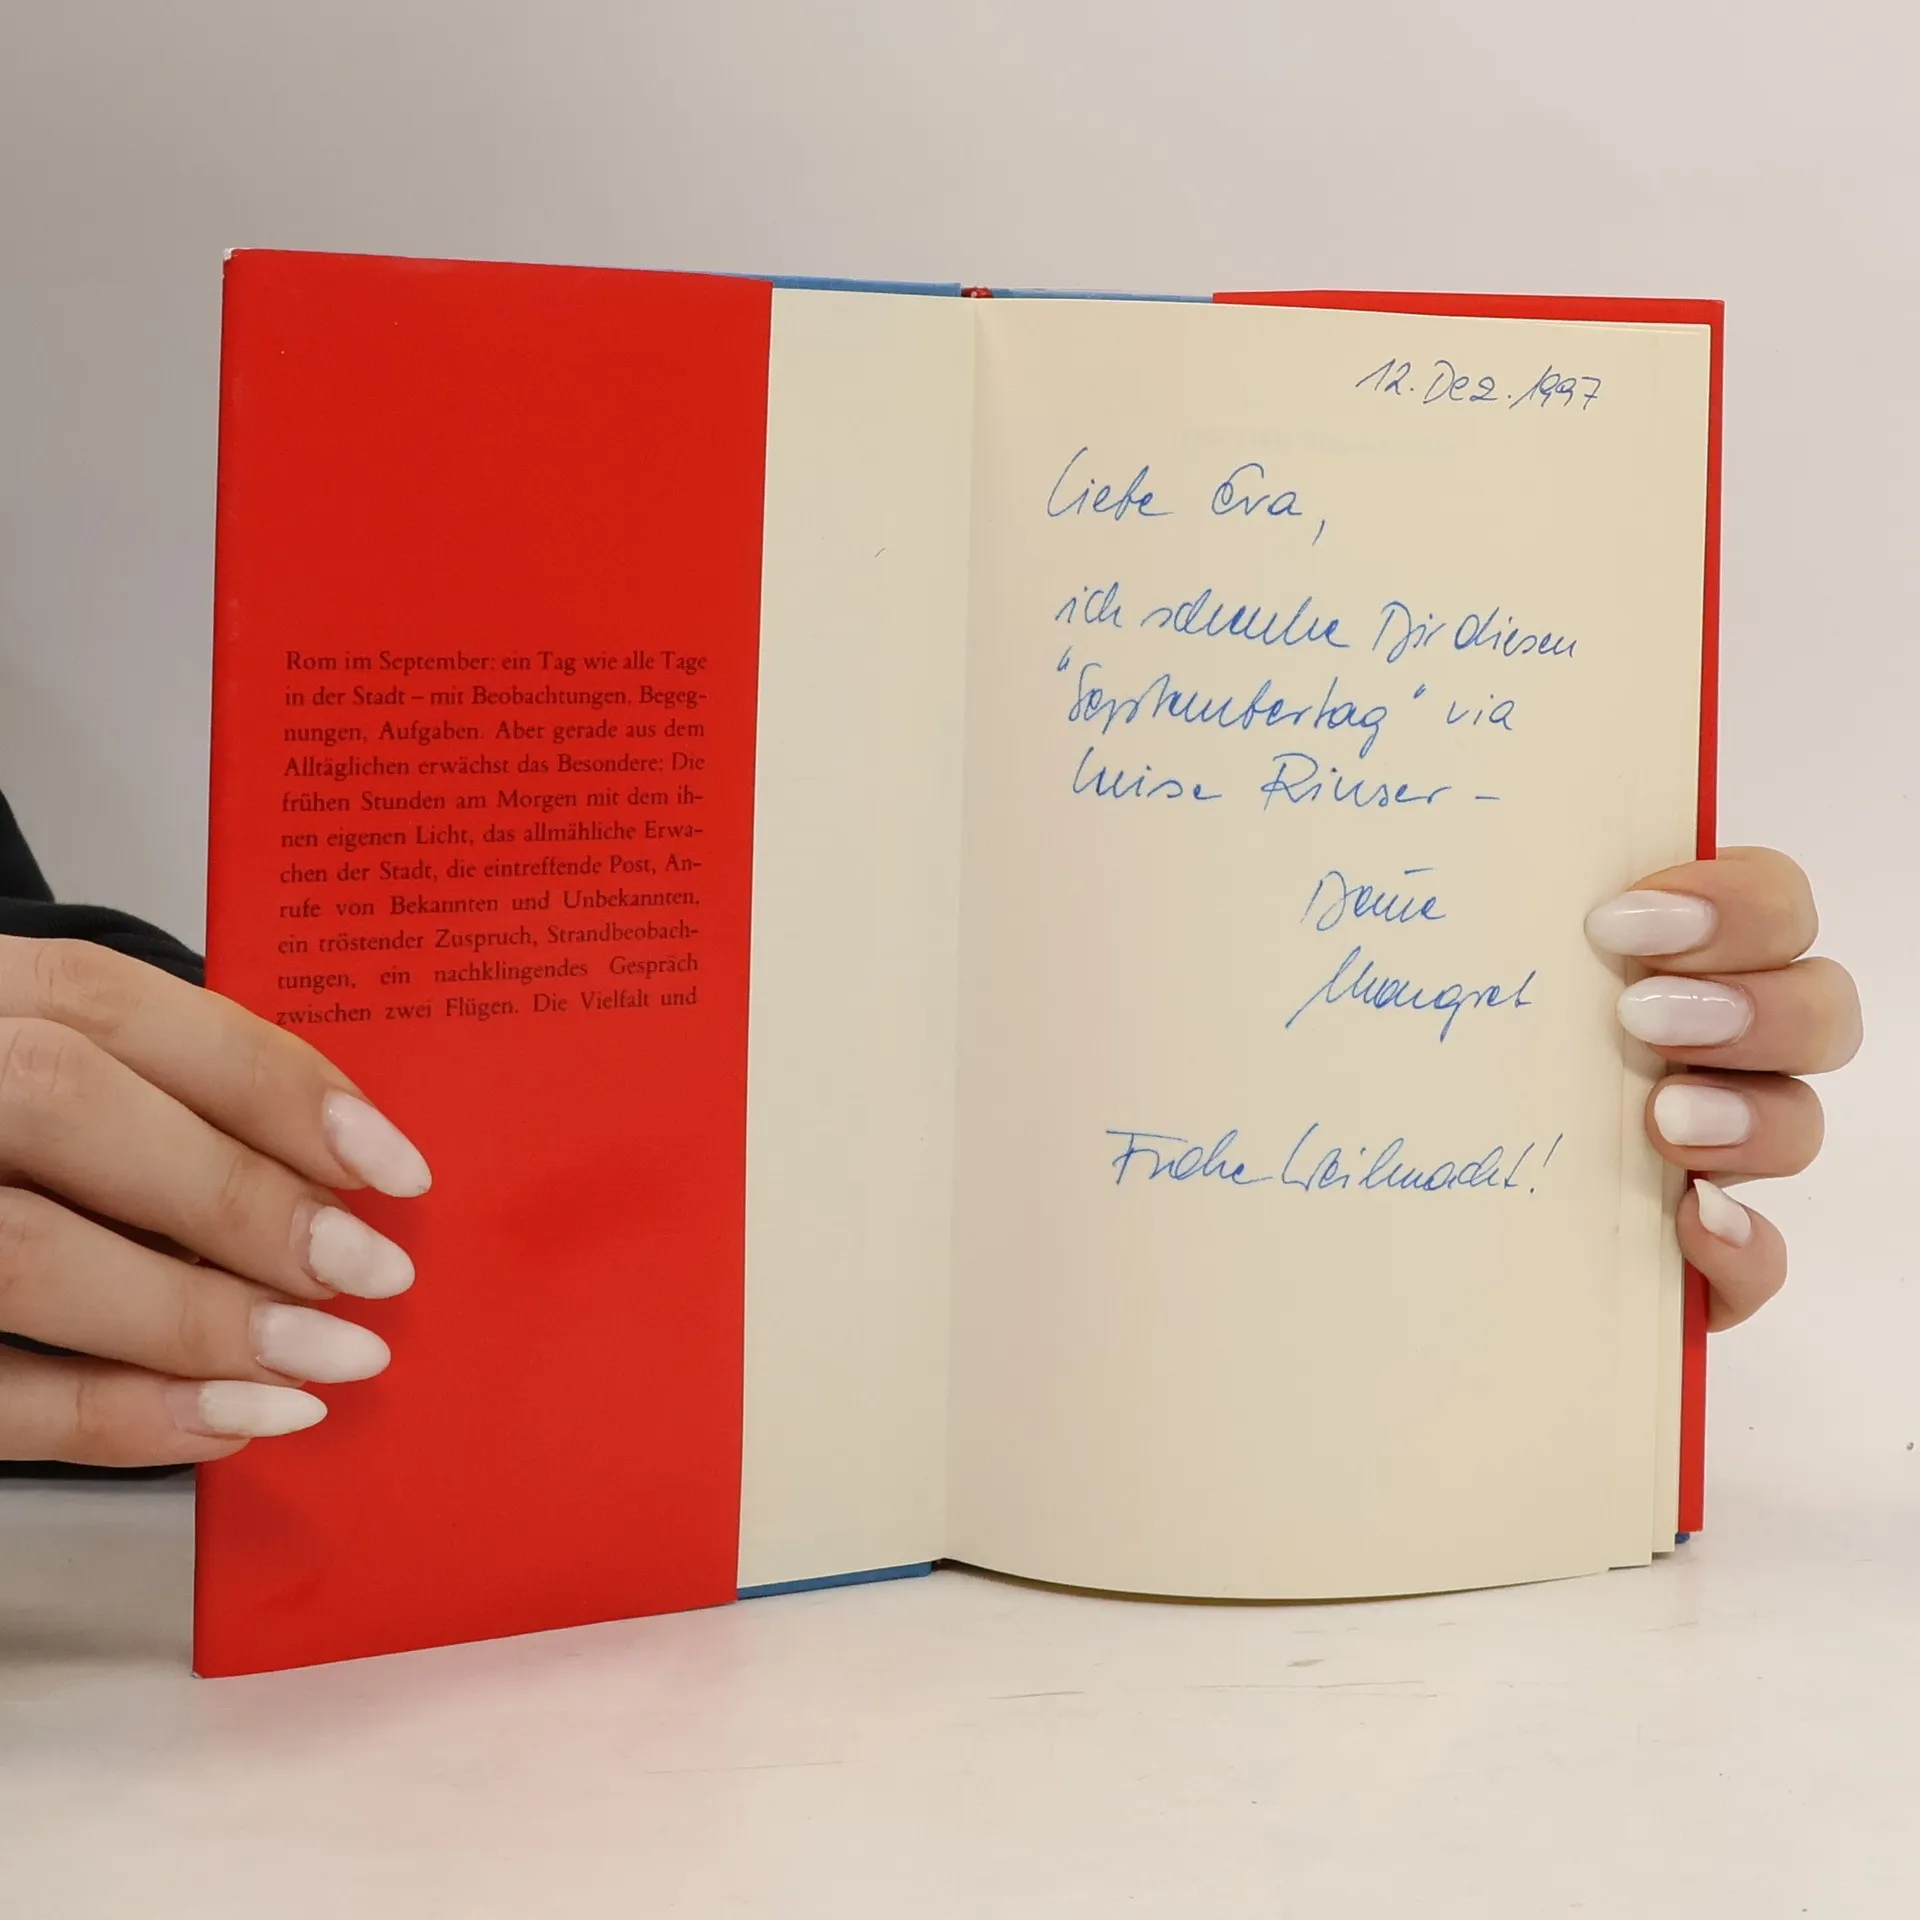 Rom im September: ein Tag wie alle Tage
in der Stadt – mit Beobachtungen, Begeg-
nungen, Aufgaben. Aber gerade aus dem
Alltäglichen erwächst das Besondere: Die
frühen Stunden am Morgen mit dem ih-
nen eigenen Licht, das allmähliche Erwa-
chen der Stadt, die eintreffende Post, An-
rufe von Bekannten und Unbekannten,
ein tröstender Zuspruch, Strandbeobach-
tungen, ein nachklingendes Gespräch
zwischen zwei Flügen. Die Vielfalt und
12. Dez. 1997
Liebe Eva,
ich schenke Dir diesen
"Septembertag" via
Luise Rinser –
Deine
Margret
Frohe Weihnacht!